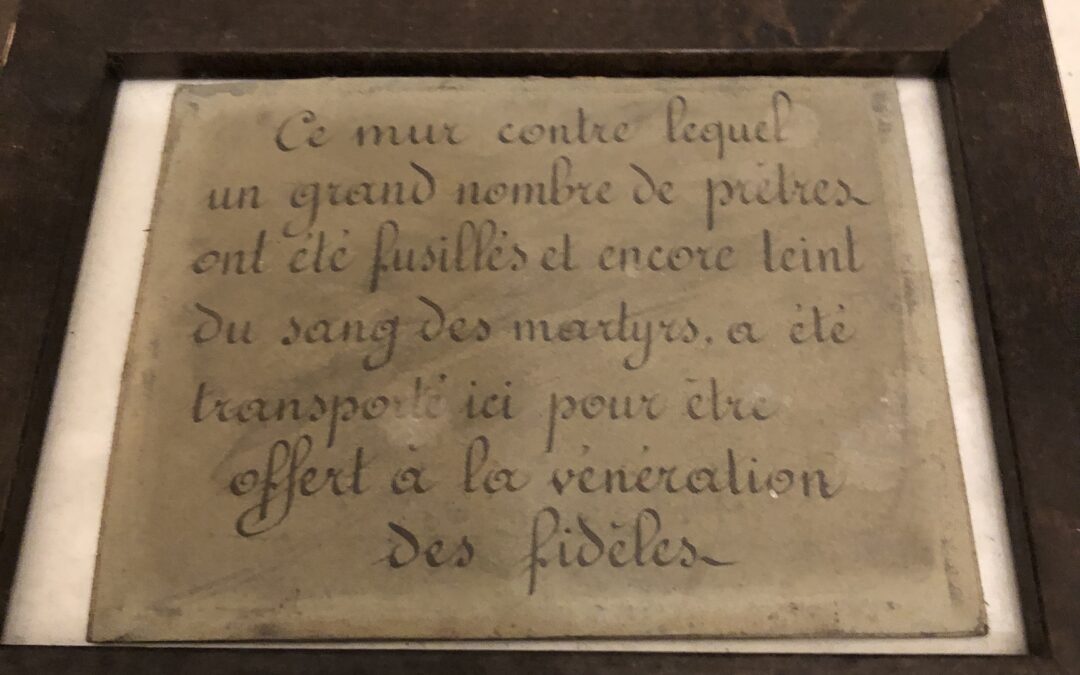 Ce mur contre lequel
un grand nombre de prêtres
ont été fusillés et encore teint
du sang des martyrs, a été
transporté ici pour être
offert à la vénération
des fidèles